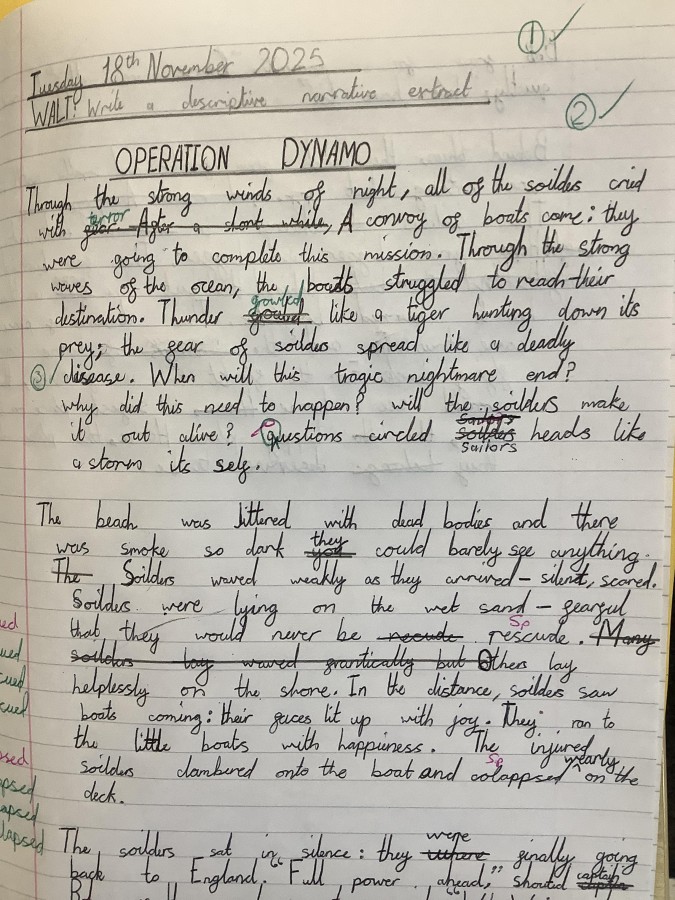 ①
Tuesday 18th November 2025
WALT: Write a descriptive narrative extract
②
OPERATION DYNAMO
Through the strong winds of night, all of the soilders cried
with terror fear. After a short while, A convoy of boats come: they
were going to complete this mission. Through the strong
waves of the ocean, the boats struggled to reach their
destination. Thunder growled like a tiger hunting down its
prey; the fear of soilders spread like a deadly
③ disease. When will this tragic nightmare end?
why did this need to happen? will the soilders make
it out alive? Questions circled sailors soilders sailors heads like
a storm its self.
The beach was littered with dead bodies and there
was smoke so dark they you could barely see anything.
The Soilders waved weakly as they arrived - silent, scared.
Soilders were lying on the wet sand - fearful
Sp
that they would never be rescude rescude. Many
soilders lay waved frantically but Others lay
helplessly on the shore. In the distance, soilders saw
boats coming: their faces lit up with joy. They ran to
the little boats with happiness. The injured
Sp
soilders clambered onto the boat and colappsed wearly on the
deck.
The soilders sat in silence: they were finally going
back to England. "Full power ahead," shouted captain